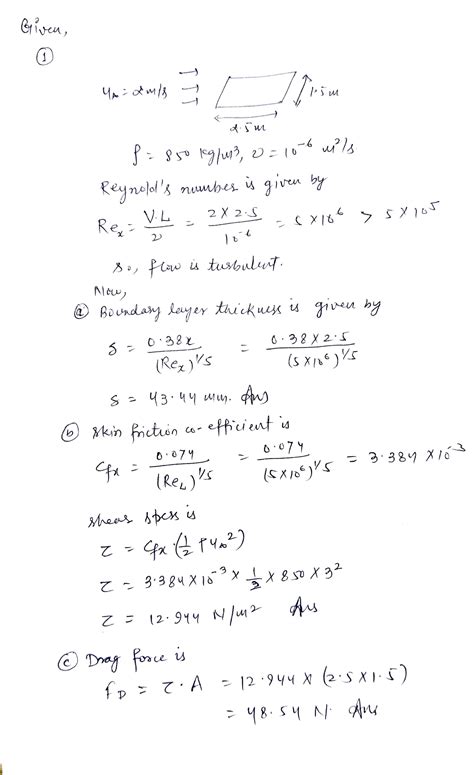 Given,
①
u∞ = 2 m/s
1.5 m
2.5 m
ρ = 850 kg/m³, υ = 10⁻⁶ m²/s
Reynold's number is given by
Reₓ = V.L/υ = 2 × 2.5/10⁻⁶ = 5 × 10⁶ > 5 × 10⁵
so, flow is turbulent.
Now,
ⓐ Boundary layer thickness is given by
δ = 0.38x/(Reₓ)^1/5 = 0.38 × 2.5/(5 × 10⁶)^1/5
δ = 43.44 mm. Ans
ⓑ Skin friction co-efficient is
Cfx = 0.074/(Re_L)^1/5 = 0.074/(5×10⁶)^1/5 = 3.384 × 10⁻³
shear stress is
τ = Cfx · (1/2 ρ u∞²)
τ = 3.384 × 10⁻³ × 1/2 × 850 × 3²
τ = 12.944 N/m² Ans
ⓒ Drag force is
F_D = τ · A = 12.944 × (2.5 × 1.5)
= 48.54 N. Ans